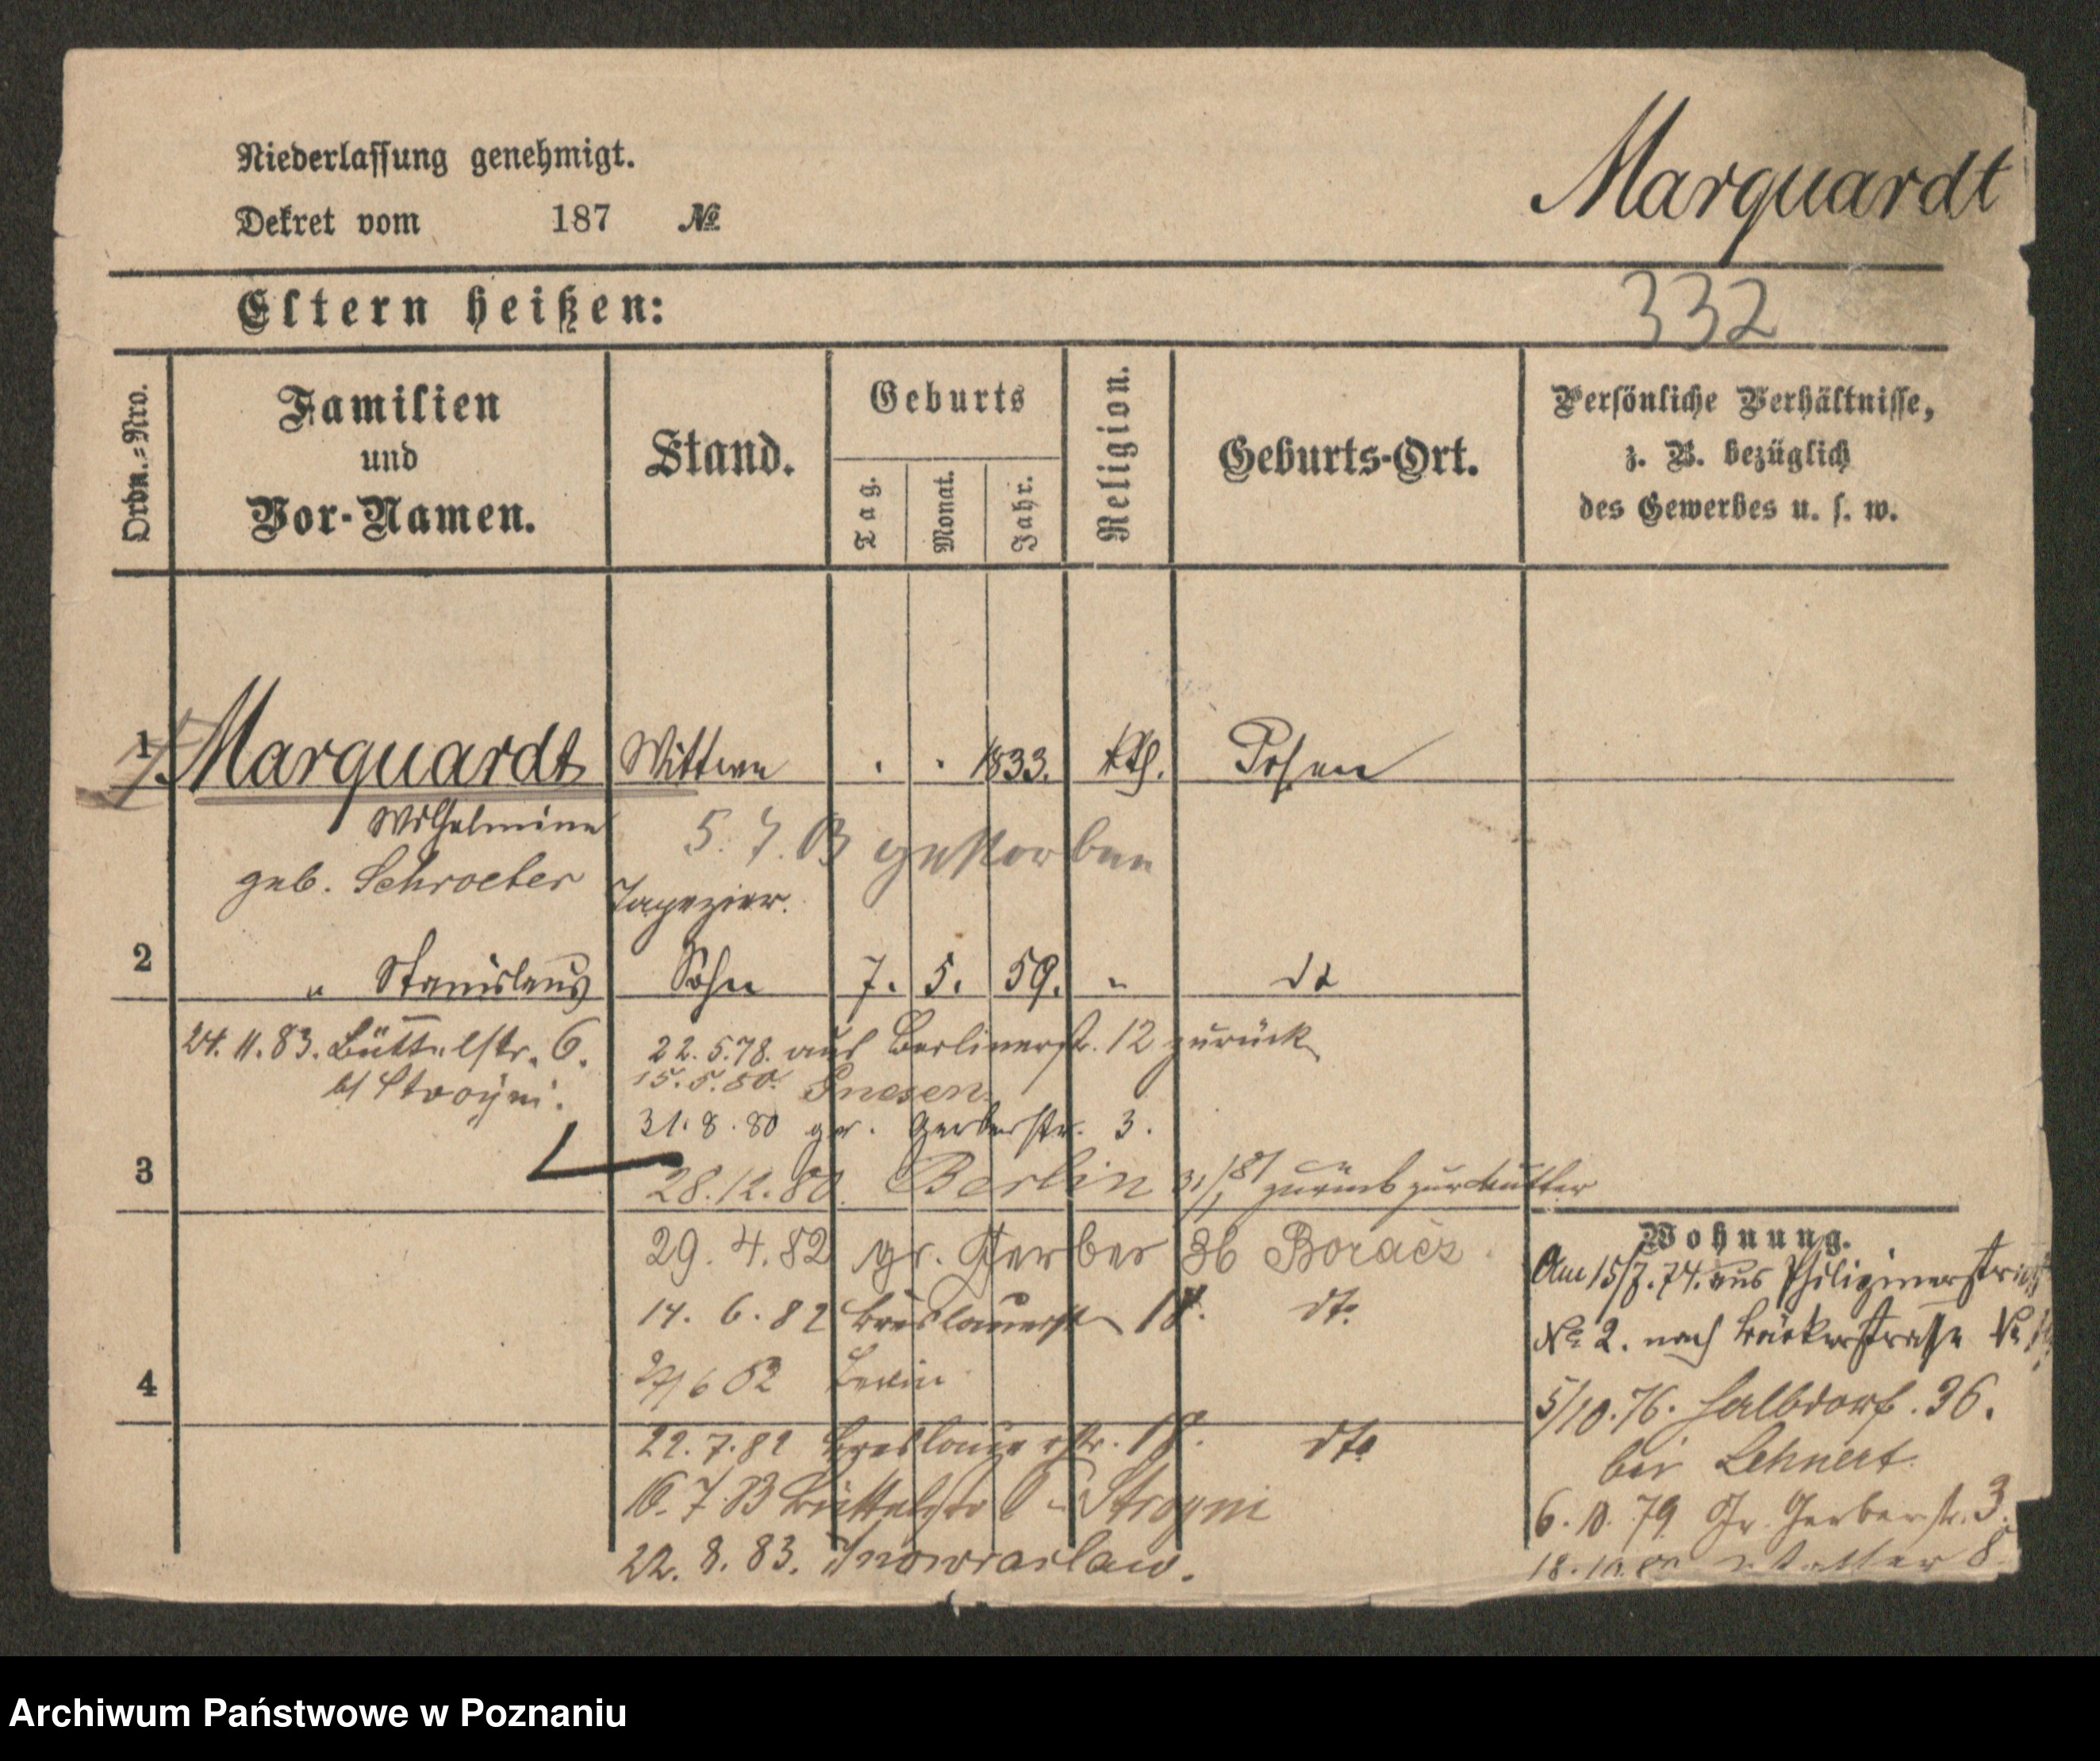 Niederlassung genehmigt.
Dekret vom 187 №
Marquardt
332
Eltern heißen:
Ordn.-Nro.
Familien
und
Vor-Namen.
Stand.
Geburts
Tag.
Monat.
Jahr.
Religion.
Geburts-Ort.
Persönliche Verhältnisse,
z. B. bezüglich
des Gewerbes u. s. w.
1 Marquardt Wittwe . . 1833. kth. Posen
Wilhelmine
geb. Schroeter
5. 7. 83 gestorben
Tapezier.
2 " Stanislaus Sohn 7. 5. 59. " do
24. 11. 83. Büttelstr. 6.
bei Stroyni.
22. 5. 78. aus Berlinerstr. 12 zurück
15. 5. 80. Gnesen
31. 8. 80 gr. Gerberstr. 3.
3
28. 12. 80. Berlin zurück zur Mutter
29. 4. 82 gr. Gerber 36 Boracz
14. 6. 82 Breslauerstr 18. dto
4
27/6 82 Berlin
22. 7. 82 Breslauerstr. 18. dto
16. 7. 83 Büttelstr 6 Stroyni
22. 8. 83. Inowraclaw.
Wohnung.
Am 15/7. 74. aus Philipinerstraße
№ 2. nach Bäckerstrasse №
5/10. 76. Halbdorf. 36.
bei Lehnert.
6. 10. 79 Gr. Gerberstr. 3.
18. 10. 80 8.
Archiwum Państwowe w Poznaniu